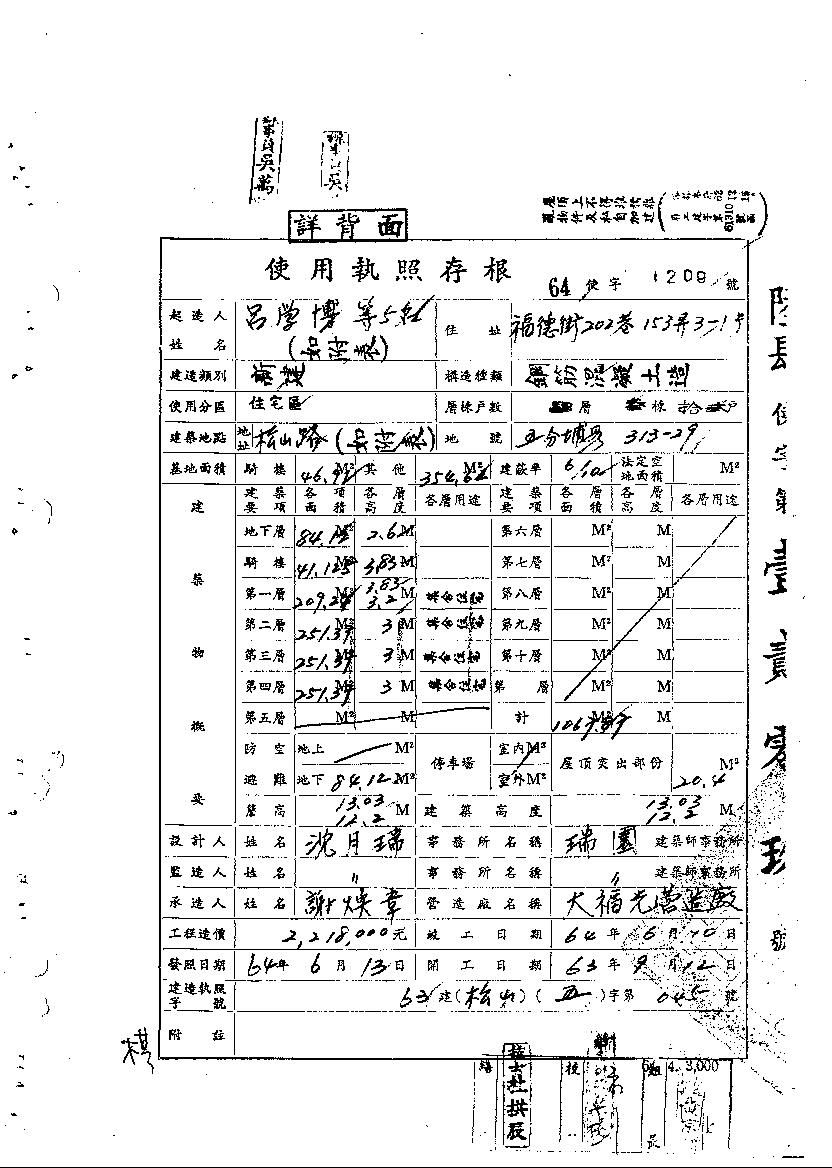 詳背面
使用執照存根
64 使字 1208 號
起造人姓名 呂學博等5名 (如附表) 住址 福德街202巷153弄3-1号
建造類別 新建 構造種類 鋼筋混凝土造
使用分區 住宅區 層棟戶數 層 棟 戶
建築地點 地址 松山路 (如附表) 地號 五分埔段 313-29
基地面積 騎樓 M² 其他 354.62 建蔽率 6/10 法定空地面積 M²
建築物概要 建築要項 各項面積 各層高度 各層用途 建築要項 各層面積 各層高度 各層用途
地下層 84.12 M² 2.6 M 第六層 M² M
騎樓 41.125 M² 3.83 M 第七層 M² M
第一層 M² 3.83 3.2 M 集合住宅 第八層 M² M
第二層 251.39 M² 3 M 集合住宅 第九層 M² M
第三層 251.39 M² 3 M 集合住宅 第十層 M² M
第四層 251.39 M² 3 M 集合住宅 第 層 M² M
第五層 M² M 計 M² M
防空避難 地上 M² 停車場 室內 M² 屋頂突出部份 M²
地下 84.12 M² 室外 M² 20.4
簷高 13.03 12.2 M 建築高度 13.03 12.2 M
設計人 姓名 沈月瑞 事務所名稱 瑞園 建築師事務所
監造人 姓名 〃 事務所名稱 〃 建築師事務所
承造人 姓名 謝煥章 營造廠名稱 大福光營造廠
工程造價 2,218,000元 竣工日期 64年6月10日
發照日期 64年6月13日 開工日期 63年9月12日
建造執照字號 63建(松山)(五)字第045號
附註
使字第壹貳零玖號
4. 3,000